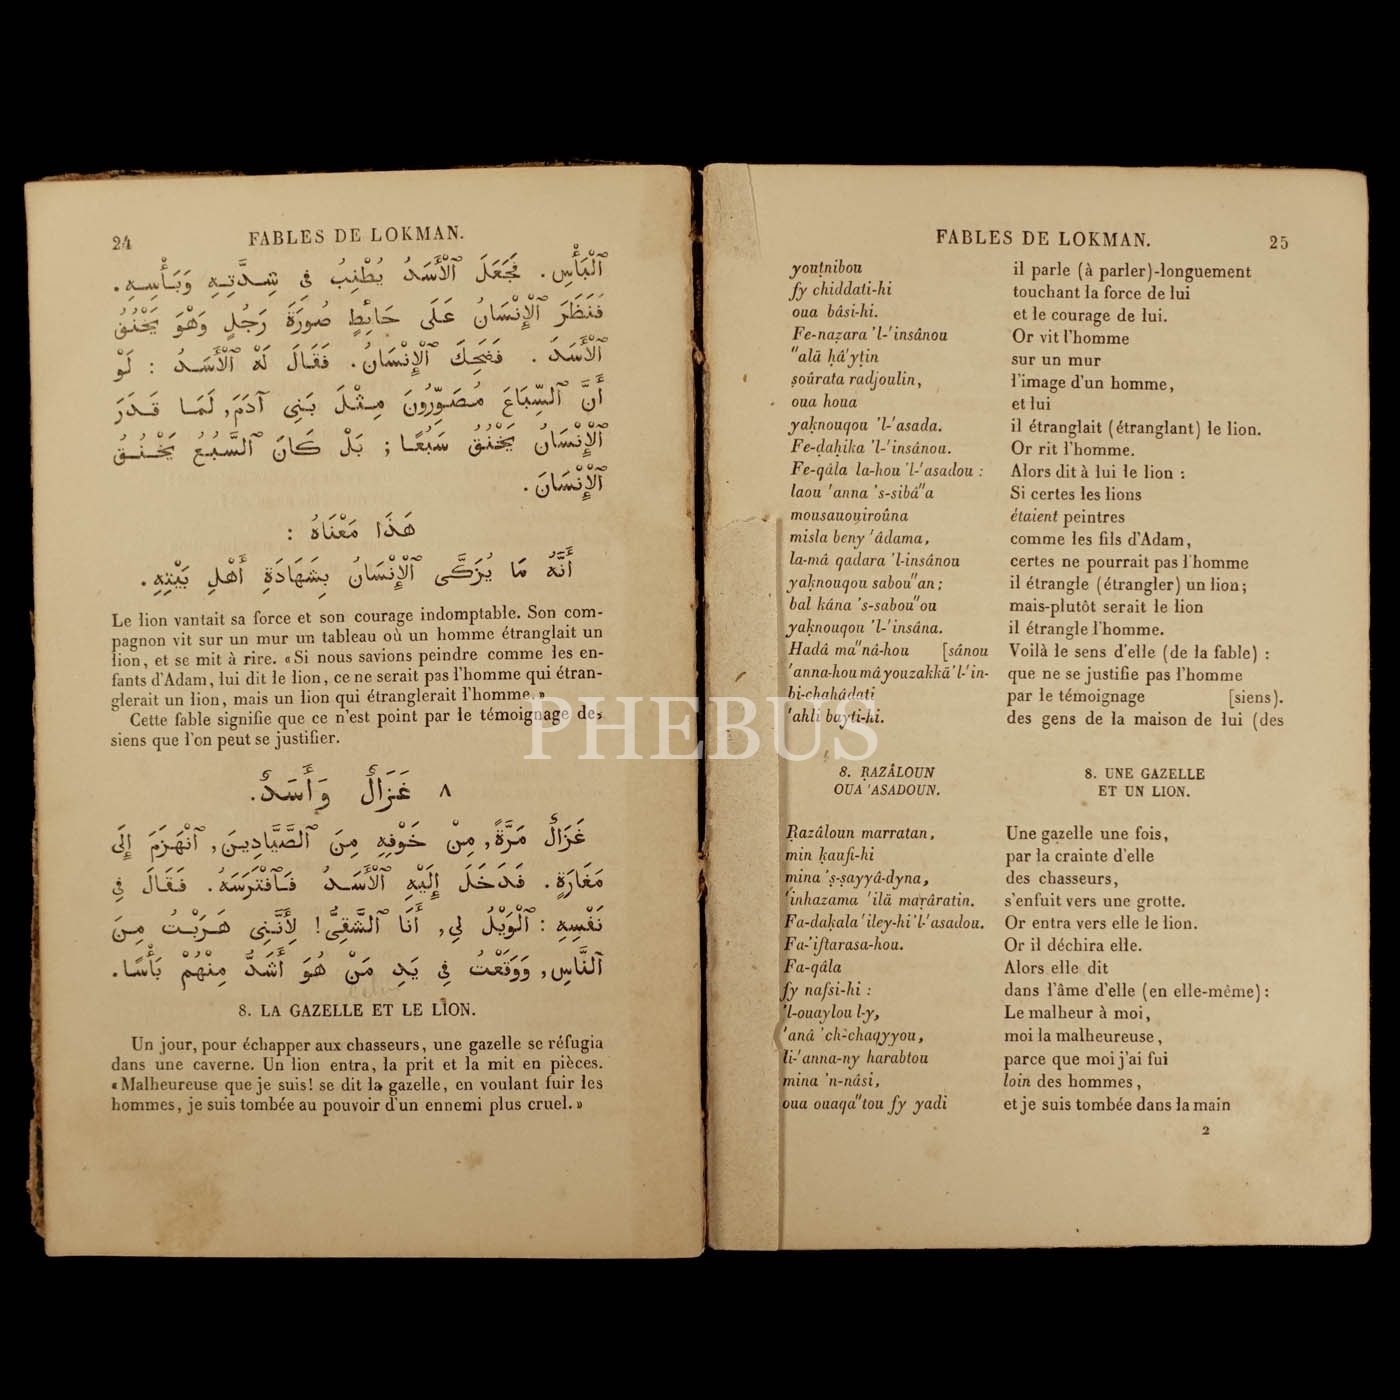 24
FABLES DE LOKMAN.
ٱلْبَأْسِ. فَجَعَلَ ٱلْأَسَدُ يُطْنِبُ فِى شِدَّتِهِ وَبَأْسِهِ.
فَنَظَرَ ٱلْإِنْسَانُ عَلَى حَائِطٍ صُورَةَ رَجُلٍ وَهْوَ يَخْنُقُ
ٱلْأَسَدَ. فَضَحِكَ ٱلْإِنْسَانُ. فَقَالَ لَهُ ٱلْأَسَدُ : لَوْ
أَنَّ ٱلسِّبَاعَ مُصَوِّرُونَ مِثْلَ بَنِى آدَمَ, لَمَا قَدَرَ
ٱلْإِنْسَانُ يَخْنُقُ سَبُعًا ; بَلْ كَانَ ٱلسَّبُعُ يَخْنُقُ
ٱلْإِنْسَانَ.
هَذَا مَعْنَاهُ :
أَنَّهُ مَا يُزَكَّى ٱلْإِنْسَانُ بِشَهَادَةِ أَهْلِ بَيْتِهِ.
Le lion vantait sa force et son courage indomptable. Son com-
pagnon vit sur un mur un tableau où un homme étranglait un
lion, et se mit à rire. «Si nous savions peindre comme les en-
fants d'Adam, lui dit le lion, ce ne serait pas l'homme qui étran-
glerait un lion, mais un lion qui étranglerait l'homme.»
Cette fable signifie que ce n'est point par le témoignage des
siens que l'on peut se justifier.
٨ غَزَالٌ وَأَسَدٌ.
غَزَالٌ مَرَّةً, مِنْ خَوْفِهِ مِنَ ٱلصَّيَّادِينَ, ٱنْهَزَمَ إِلَى
مَغَارَةٍ. فَدَخَلَ إِلَيْهِ ٱلْأَسَدُ فَٱفْتَرَسَهُ. فَقَالَ فِى
نَفْسِهِ : ٱلْوَيْلُ لِى, أَنَا ٱلشَّقِىُّ! لِأَنَّنِى هَرَبْتُ مِنَ
ٱلنَّاسِ, وَوَقَعْتُ فِى يَدِ مَنْ هُوَ أَشَدُّ مِنْهُمْ بَأْسًا.
8. LA GAZELLE ET LE LION.
Un jour, pour échapper aux chasseurs, une gazelle se réfugia
dans une caverne. Un lion entra, la prit et la mit en pièces.
«Malheureuse que je suis! se dit la gazelle, en voulant fuir les
hommes, je suis tombée au pouvoir d'un ennemi plus cruel.»
FABLES DE LOKMAN.
25
youṭnibou il parle (à parler)-longuement
fy chiddati-hi touchant la force de lui
oua bâsi-hi. et le courage de lui.
Fe-naẓara 'l-'insânou Or vit l'homme
"alä ḥâ'yṭin sur un mur
ṣoûrata radjoulin, l'image d'un homme,
oua houa et lui
yaḵnouqou 'l-'asada. il étranglait (étranglant) le lion.
Fe-ḍaḥika 'l-'insânou. Or rit l'homme.
Fe-qâla la-hou 'l-'asadou : Alors dit à lui le lion :
laou 'anna 's-sibâ"a Si certes les lions
mousauouiroûna étaient peintres
misla beny 'âdama, comme les fils d'Adam,
la-mâ qadara 'l-insânou certes ne pourrait pas l'homme
yaḵnouqou sabou"an; il étrangle (étrangler) un lion;
bal kâna 's-sabou"ou mais-plutôt serait le lion
yaḵnouqou 'l-'insâna. il étrangle l'homme.
Hadâ ma"nâ-hou [sânou Voilà le sens d'elle (de la fable) :
'anna-hou mâ youzakkä 'l-'in- que ne se justifie pas l'homme
bi-chahâdati par le témoignage [siens).
'ahli bayti-hi. des gens de la maison de lui (des
8. ṚAZÂLOUN 8. UNE GAZELLE
OUA 'ASADOUN. ET UN LION.
Ṛazâloun marratan, Une gazelle une fois,
min ḵaufi-hi par la crainte d'elle
mina 'ṣ-ṣayyâ-dyna, des chasseurs,
'inhazama 'ilä maṛâratin. s'enfuit vers une grotte.
Fa-daḵala 'iley-hi 'l-'asadou. Or entra vers elle le lion.
Fa-'iftarasa-hou. Or il déchira elle.
Fa-qâla Alors elle dit
fy nafsi-hi : dans l'âme d'elle (en elle-même) :
'l-ouaylou l-y, Le malheur à moi,
'anâ 'ch-chaqyyou, moi la malheureuse,
li-'anna-ny harabtou parce que moi j'ai fui
mina 'n-nâsi, loin des hommes,
oua ouaqa"tou fy yadi et je suis tombée dans la main
2
PHEBUS